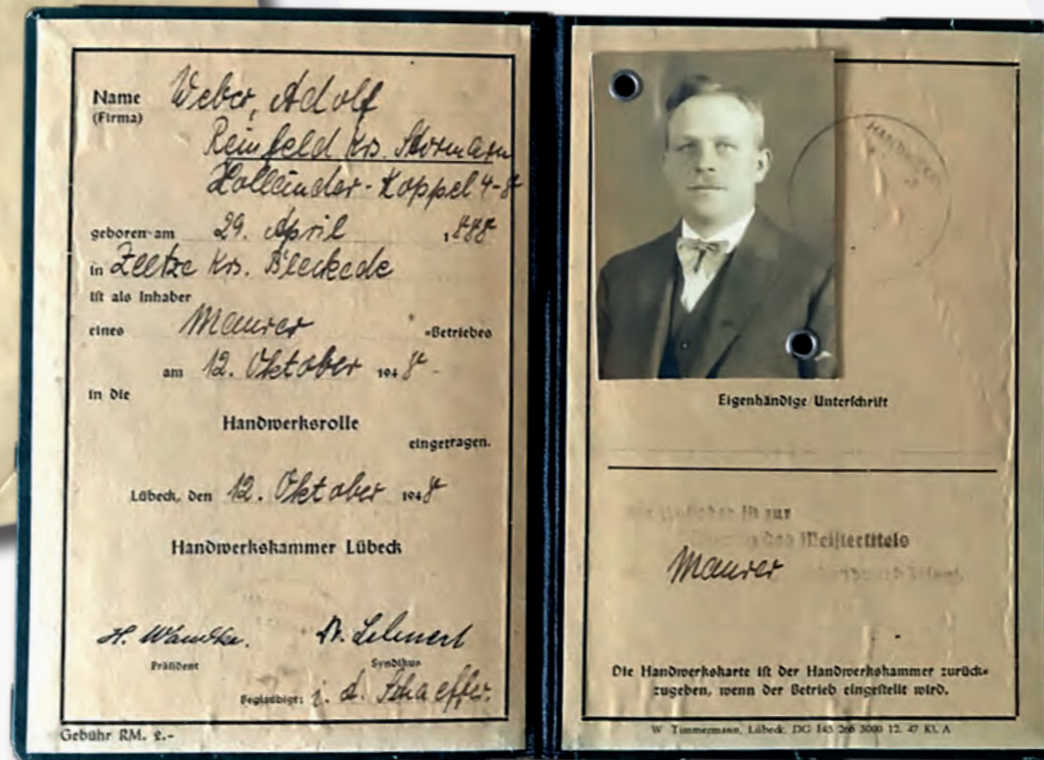 Name Weber, Adolf
(Firma)
Reinfeld Krs. Stormarn
Holländer-Koppel 4-8
geboren am 29. April 1888
in Zeetze Krs. Bleckede
ist als Inhaber
eines Maurer -Betriebes
am 12. Oktober 1948
in die
Handwerksrolle
eingetragen.
Lübeck, den 12. Oktober 1948
Handwerkskammer Lübeck
H. Wandke. Dr. Lehnert
Präsident Syndikus
Beglaubigt: i. A. Schaeffer.
Gebühr RM. 2.-
HANDWERK
Eigenhändige Unterschrift
ist zur
des Meistertitels
Maurer
Die Handwerkskarte ist der Handwerkskammer zurück-
zugeben, wenn der Betrieb eingestellt wird.
W. Timmermann, Lübeck, DG 143 266 3000 12. 47 KL A